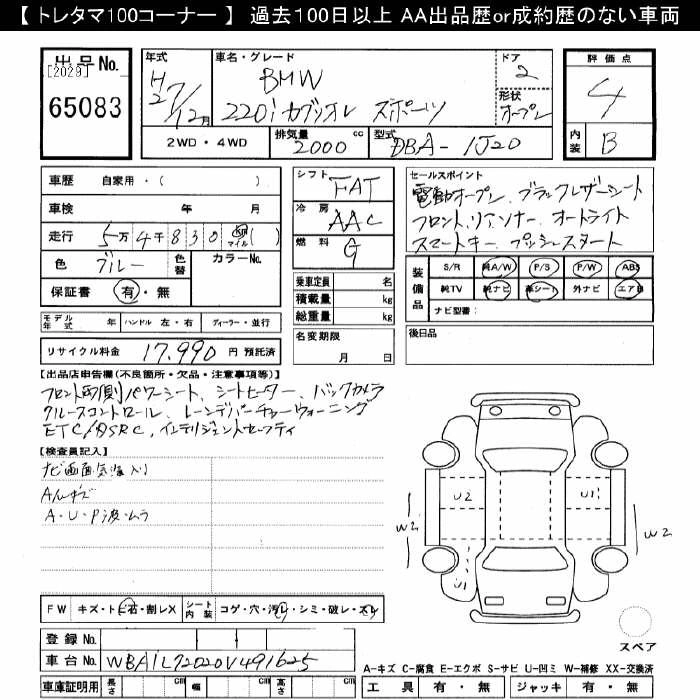 【 トレタマ100コーナー 】 過去100日以上 AA出品歴or成約歴のない車両
出品No.
[2029]
65083
年式
H27/12月
車名・グレード
BMW
220i カブリオレ スポーツ
ドア
2
形状
オープン
評価点
4
内装
B
2WD・4WD
排気量
2000 cc
型式
DBA-1J20
車歴 自家用・( )
車検 年 月
走行 5万4千830 km マイル ( )
色 ブルー
色替
カラーNo.
保証書 有・無
シフト FAT
冷房 AAC
燃料 G
乗車定員 名
積載量 kg
総重量 kg
セールスポイント
電動オープン、ブラックレザーシート
フロント、リアソナー、オートライト
スマートキー、プッシュスタート
装備品
S/R 純A/W P/S P/W ABS
純TV 純ナビ 革シート 外ナビ エア
ナビ型番:
モデル年式 年
ハンドル 左・右
ディーラー・並行
名変期限
月 日
後日品
リサイクル料金 17,990 円 預託済
【出品店申告欄(不良箇所・欠品・注意事項等)】
フロント両側パワーシート、シートヒーター、バックカメラ
クルーズコントロール、レーンデパーチャーウォーニング
ETC/DSRC、インテリジェントセーフティ
【検査員記入】
ナビ画面気泡入り
Aハルキズ
A・U・P波・ムラ
U2
U1
W2
W2
U1
FW キズ・トビ石・割レX
シート内装 コゲ・穴・汚レ・シミ・破レ・スレ
スペア
登録No.
車台No. WBA1L72020V491625
A-キズ C-腐食 E-エクボ S-サビ U-凹ミ W-補修 XX-交換済
車庫証明用 長さ cm 幅 cm 高さ cm
工具 有・無 ジャッキ 有・無